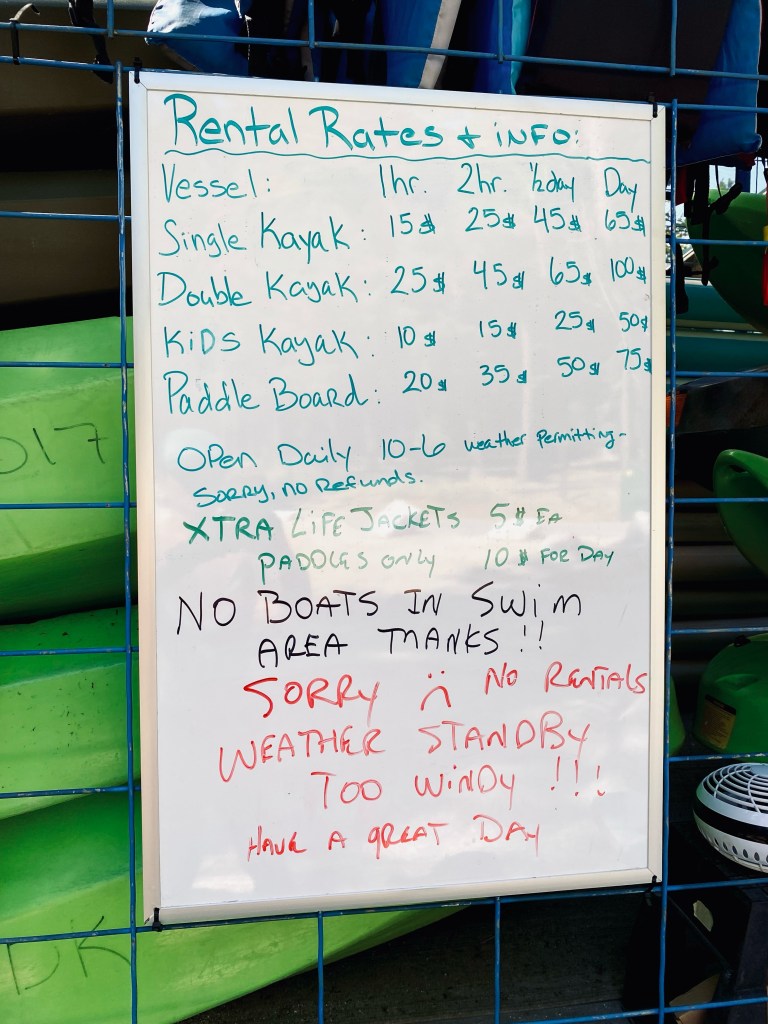 Rental Rates + iNFO:
Vessel: 1hr. 2hr. ½day Day
Single Kayak: 15$ 25$ 45$ 65$
Double Kayak: 25$ 45$ 65$ 100$
KiDs Kayak: 10$ 15$ 25$ 50$
Paddle Board: 20$ 35$ 50$ 75$
Open Daily 10-6 weather permitting-
Sorry, no Refunds.
XTRA LiFE JACKETS 5$ EA
PADDLES ONLY 10$ FOR DAY
NO BOATS IN SWim
AREA THANKS!!
SORRY :( NO RENTALS
WEATHER STANDBY
TOO WiNDY !!!
HAVE A GREAT DAY
017
DK